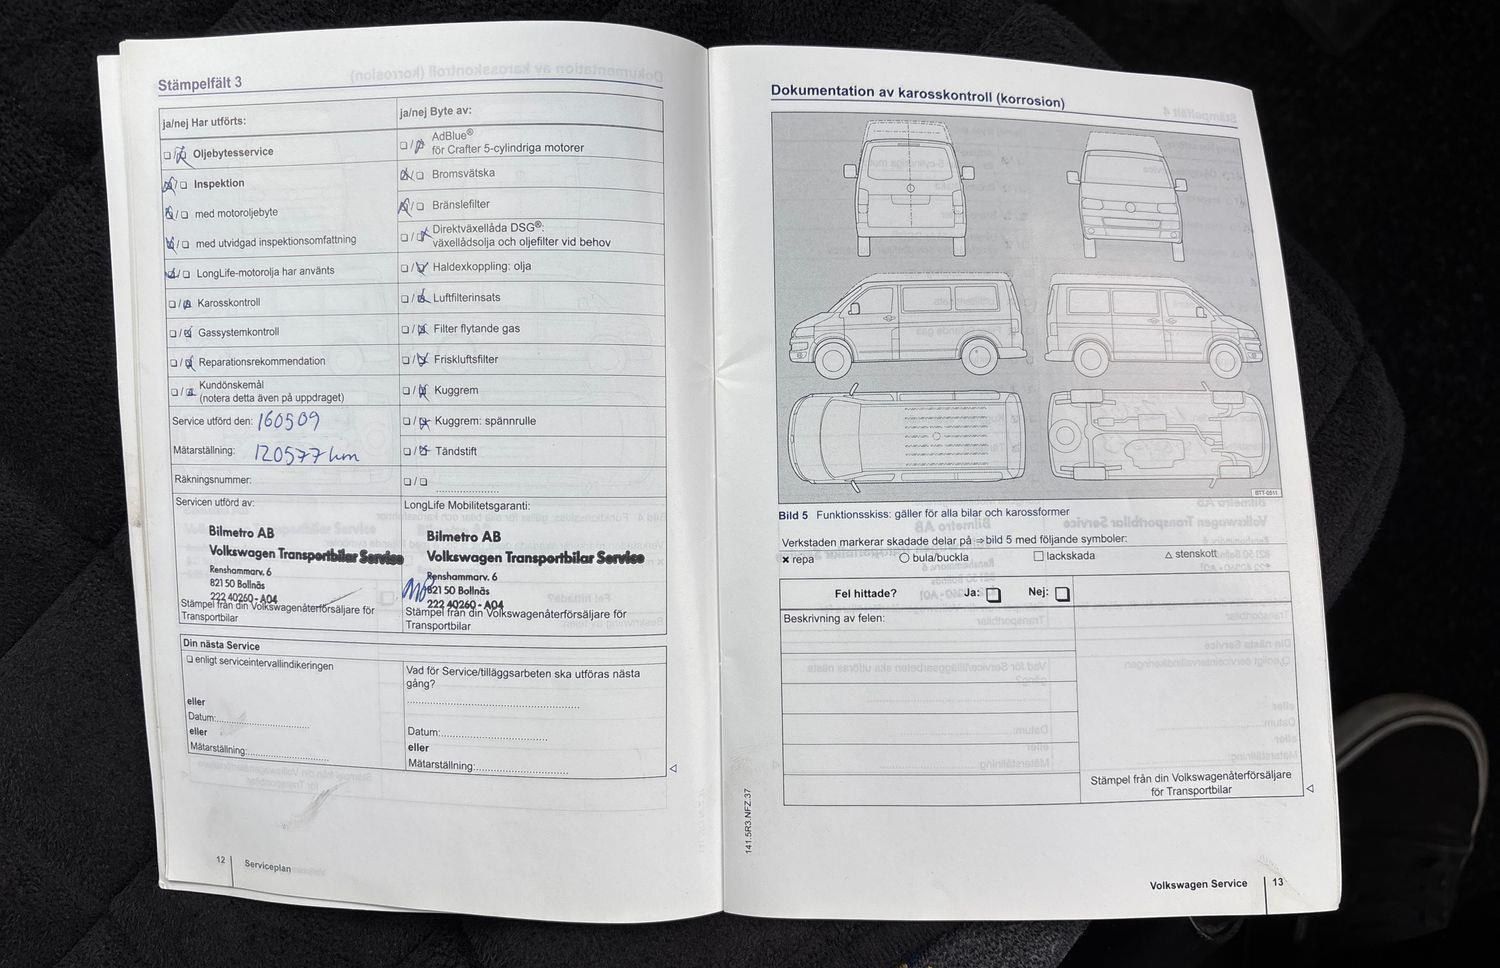 Stämpelfält 3
ja/nej Har utförts:
❑/❑ Oljebytesservice
❑/❑ Inspektion
❑/❑ med motoroljebyte
❑/❑ med utvidgad inspektionsomfattning
❑/❑ LongLife-motorolja har använts
❑/❑ Karosskontroll
❑/❑ Gassystemkontroll
❑/❑ Reparationsrekommendation
❑/❑ Kundönskemål
(notera detta även på uppdraget)
Service utförd den: 160509
Mätarställning: 120577 km
Räkningsnummer:
Servicen utförd av:
Bilmetro AB
Volkswagen Transportbilar Service
Renshammarv. 6
821 50 Bollnäs
222 40260 - A04
Stämpel från din Volkswagenåterförsäljare för
Transportbilar
ja/nej Byte av:
❑/❑ AdBlue®
för Crafter 5-cylindriga motorer
❑/❑ Bromsvätska
❑/❑ Bränslefilter
❑/❑ Direktväxellåda DSG®:
växellådsolja och oljefilter vid behov
❑/❑ Haldexkoppling: olja
❑/❑ Luftfilterinsats
❑/❑ Filter flytande gas
❑/❑ Friskluftsfilter
❑/❑ Kuggrem
❑/❑ Kuggrem: spännrulle
❑/❑ Tändstift
❑/❑ ....................
LongLife Mobilitetsgaranti:
Bilmetro AB
Volkswagen Transportbilar Service
Renshammarv. 6
821 50 Bollnäs
222 40260 - A04
Stämpel från din Volkswagenåterförsäljare för
Transportbilar
Din nästa Service
❑ enligt serviceintervallindikeringen
eller
Datum:....................
eller
Mätarställning:....................
Vad för Service/tilläggsarbeten ska utföras nästa
gång?
........................................
Datum:....................
eller
Mätarställning:....................
12 Serviceplan
Dokumentation av karosskontroll (korrosion)
BTT-0511
Bild 5 Funktionsskiss: gäller för alla bilar och karossformer
Verkstaden markerar skadade delar på ⇒ bild 5 med följande symboler:
✖ repa ○ bula/buckla □ lackskada △ stenskott
Fel hittade? Ja: ❑ Nej: ❑
Beskrivning av felen:
Stämpel från din Volkswagenåterförsäljare
för Transportbilar
141.5R3.NFZ.37
Volkswagen Service 13